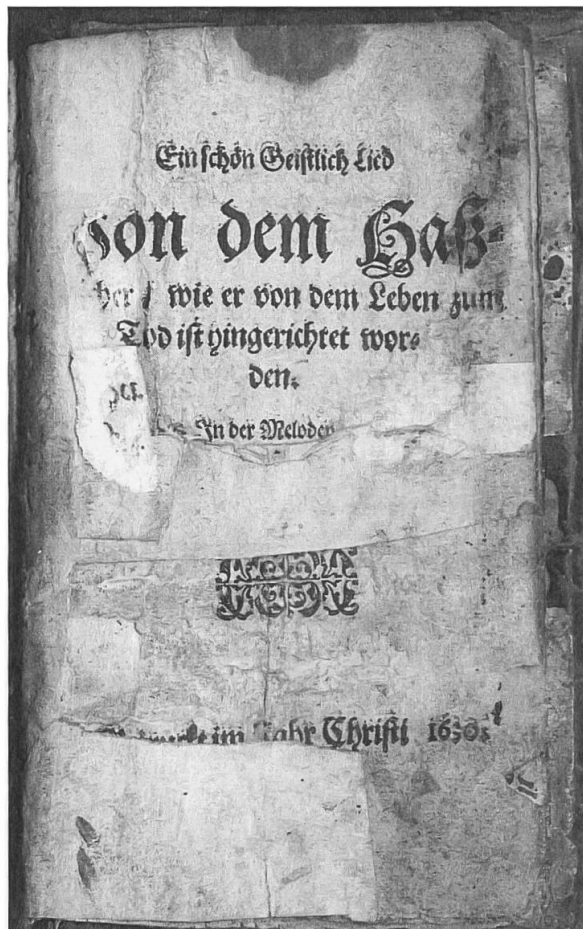 Ein schön Geistlich Lied
von dem Haß-
wie er von dem Leben zum
Tod ist hingerichtet wor-
den.
In der Melodey
im Jahr Christi 1650.